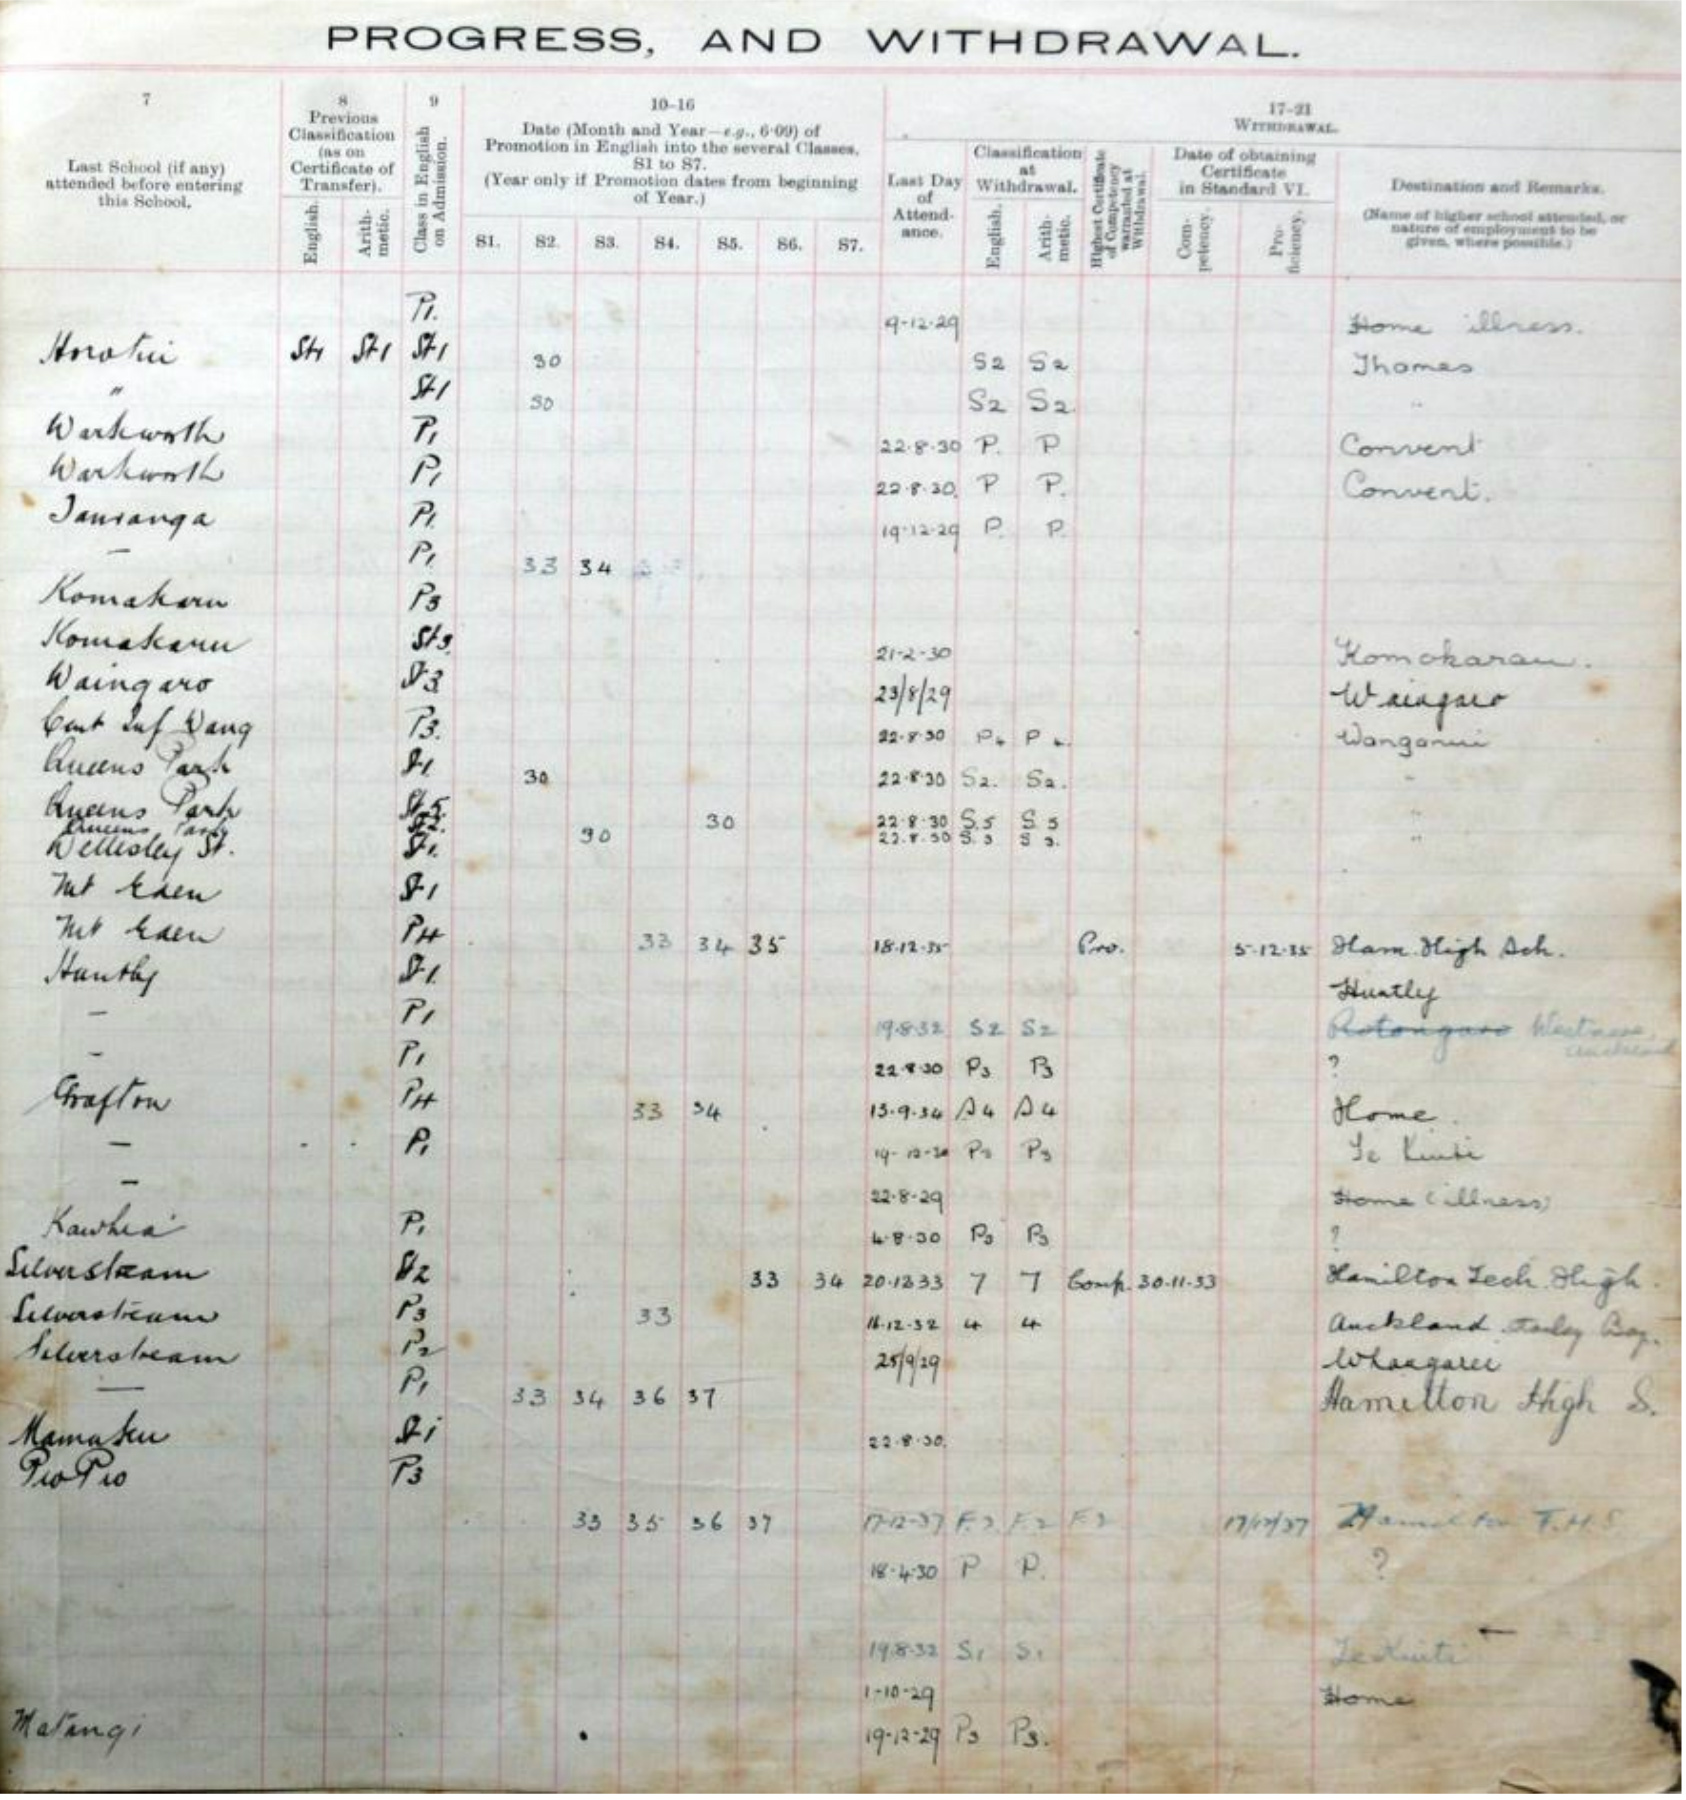 PROGRESS, AND WITHDRAWAL.
7
Last School (if any) attended before entering this School.
8
Previous Classification (as on Certificate of Transfer).
English.
Arith-metic.
9
Class in English on Admission.
10-16
Date (Month and Year—e.g., 6·09) of Promotion in English into the several Classes, S1 to S7.
(Year only if Promotion dates from beginning of Year.)
S1. S2. S3. S4. S5. S6. S7.
17-21
WITHDRAWAL.
Last Day of Attend-ance.
Classification at Withdrawal.
English.
Arith-metic.
Highest Certificate of Competency warranted at Withdrawal.
Date of obtaining Certificate in Standard VI.
Com-petency.
Pro-ficiency.
Destination and Remarks.
(Name of higher school attended, or nature of employment to be given, where possible.)
P1. 9-12-29 Home illness.
Horotiu St1 St1 St1 30 S2 S2 Thames
" St1 30 S2 S2. "
Warkworth P1 22·8·30 P. P Convent
Warkworth P1 22·8·30. P P. Convent.
Tauranga P1. 19-12-29 P. P.
— P1 33 34
Komakaru P3
Komakaru St3. 21-2-30 Komokarau.
Waingaro St3 23/8/29 Waingaro
Cent Inf Wang P3. 22·8·30 P4 P4. Wanganui
Queens Park St1 30 22·8·30 S2. S2. "
Queens Park St5 30 22·8·30 S.5 S.5 "
Queens Park St2. 30 22.8.30 S.3 S 3.
Wellesley St. St1.
Mt Eden St1
Mt Eden P4 33 34 35 18·12·35 Pro. 5·12·35 Ham. High Sch.
Huntly St1. Huntly
— P1 19·8·32 S2 S2 Rotongaro Westmere, Auckland
— P1 22·8·30 P3 P3 ?
Grafton P4 33 34 13·9·34 S4 S4 Home.
— P1 19-12-30 P3 P3 Te Kuiti
— 22-8-29 Home (illness)
Kawhia P1 4·8·30 P3 P3 ?
Silverstream St2 33 34 20·12 33 7 7 Comp. 30·11·33 Hamilton Tech. High.
Silverstream P3 33 16·12·32 4 4 Auckland Bay.
Silverstream P2 25/9/29 Whangarei
— P1 33 34 36 37 Hamilton High S.
Mamaku St1 22·8·30.
Pio Pio P3
33 35 36 37 17-12-37 F.2 F2 F2 17/12/37 Hamilton T.H.S
18·4·30 P P. ?
19·8·32 S1 S1 Te Kuiti
1-10-29 Home
Matangi 19-12-29 P3 P3.